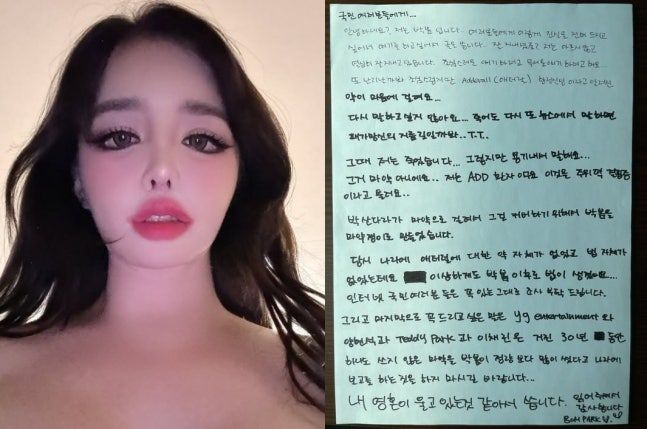 국민 여러분들에게...
안녕하세요? 저는 박봄입니다. 여러분들에게 이렇게 진심을 전해드리고
싶어서 얘기를 하고 싶어서 글을 씁니다. 잘 지내셨죠? 저는 아프지 않고
Adderall (애더럴)
약이 마음에 걸려요...
다시 말하고 있지 않아요... 죽어도 다시 또 뉴스에서 말하면
T.T.
그때 저는 죽었습니다... 그렇지만 용기내서 말해요...
그거 마약 아니에요.. 저는 ADD 환자이고요 이것은 주의력 결핍증
이라고 불려요..
박산다라가 마약으로 걸려서 그걸 커버하기 위해서 박봄을
마약쟁이로 만들었습니다.
당시 나라에 애더럴에 대한 약 자체가 없었고 법 자체가
없었는데요 이상하게도 박봄 이후로 법이 생겼어요...
인터넷 국민 여러분들은 꼭 있는그대로 조사 부탁드립니다.
그리고 마지막으로 꼭 드리고 싶은 말은 yg entertainment와
양현석과 Teddy Park과 이채린은 거진 30년 동안
하나도 쓰지 않은 마약을 박봄이 정량 보다 많이 썼다고 나라에
보고를 하는것은 하지 마시길 바랍니다...
내 영혼이 울고 있는것 같아서 씁니다. 읽어 주셔서
감사합니다
BOM PARK